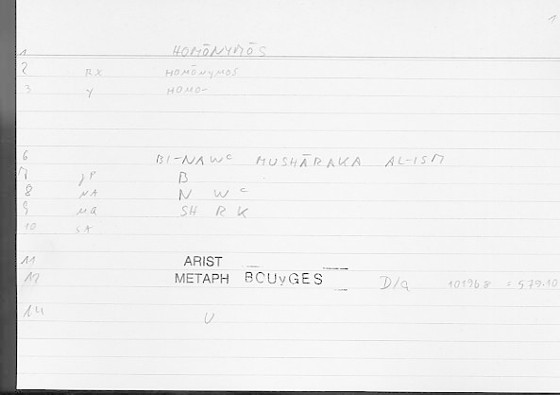 1
1 HOMŌNYMŌS
2 RX HOMŌNYMOS
3 y HOMO-
6 BI-NAWʿ MUSHĀRAKA AL-ISM
7 JP B
8 NA N W ʿ
9 MQ SH R K
10 SX
11 ARIST
12 METAPH BOUyGES D/a 1019b8 = 579.10
14 U